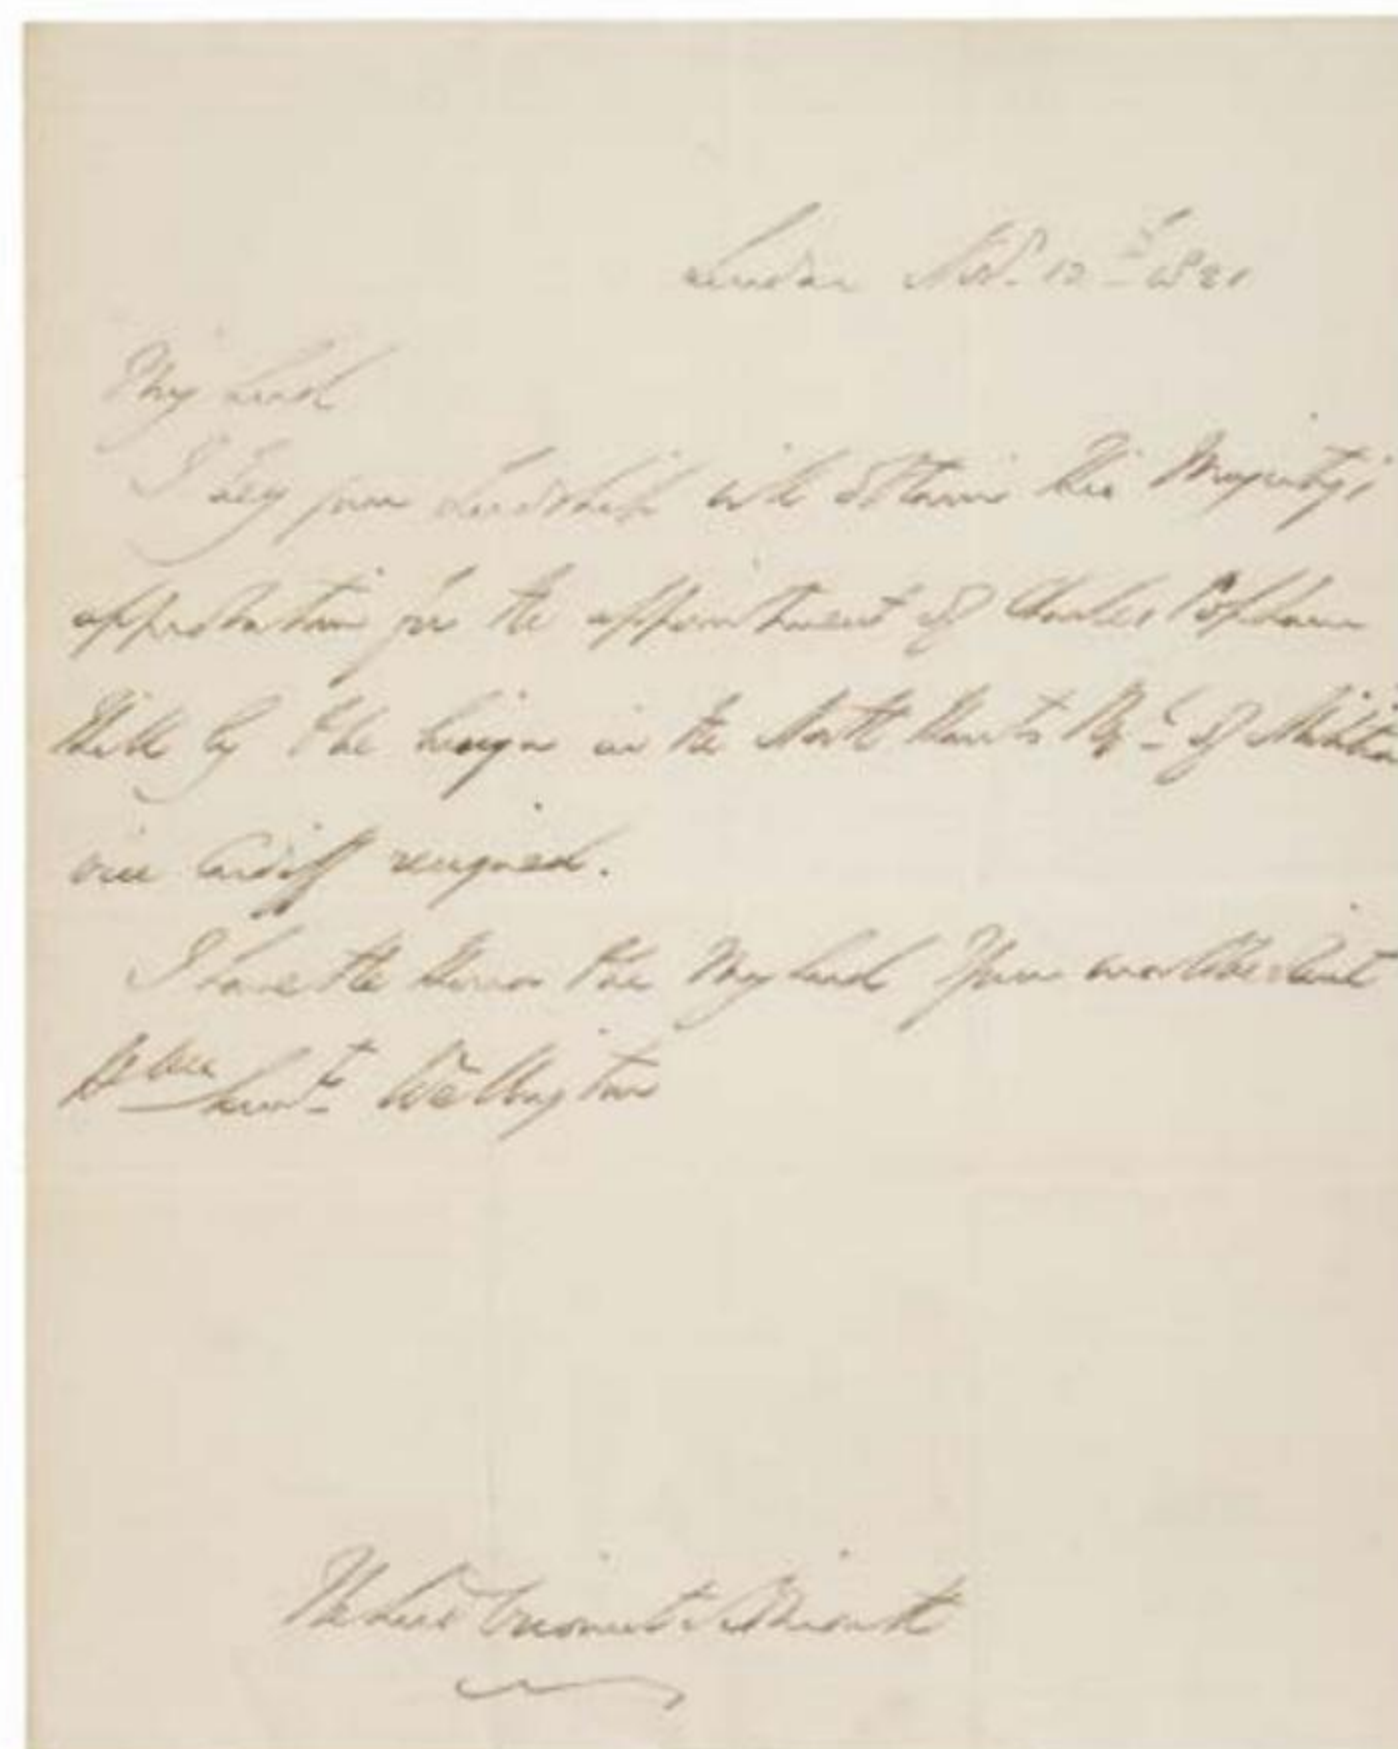 London Nov. 12th 1821
My Lord
I beg your Lordship will obtain His Majesty's
approbation for the appointment of Charles Popham
Hill to be Ensign in the North Hants Regt of Militia
vice Cardiff resigned.
I have the Honor to be My Lord Your most obedient
Humble Servt Wellington
The Lord Viscount Sidmouth